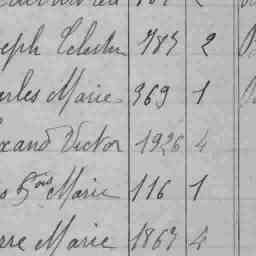 eph Celestin 783 2
arles Marie 369 1
exand Victor 1926 4
Marie 116 1
rre Marie 1867 4